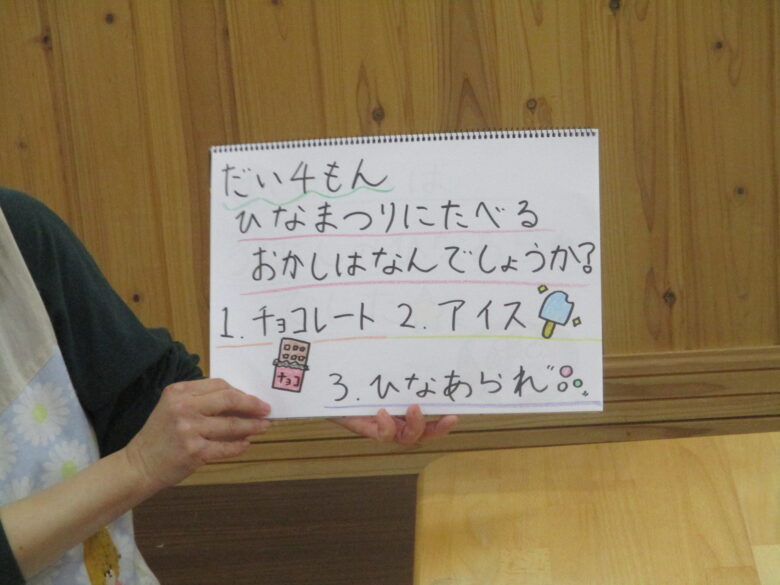 だい4もん
ひなまつりにたべる
おかしはなんでしょうか?
1. チョコレート 2. アイス
チョコ
3. ひなあられ